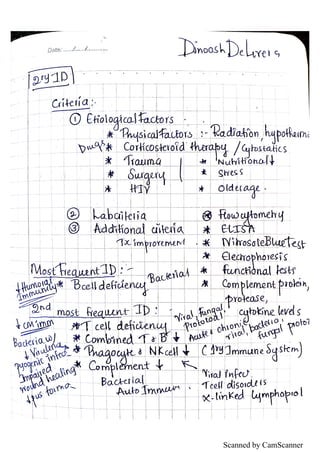 Date: / /
Dinoosh De Livera
2ry ID
Criteria:-
① Etiological factors
* Physical factors :- Radiation, hypothermi
Drugs * Corticosteroid therapy / Cytostatics
* Trauma * Nutritional ↓
* Surgery * Stress
* HIV * Old age.
② Lab criteria * Flow cytometry
③ Additional criteria * ELISA
Tx improvement * Nitrosole Blue Test
* Electrophoresis
Most frequent ID :- Bacterial * functional tests
↓ Humoral Immunity * B cell deficiency * Complement protein,
protease,
2nd most frequent ID : Viral, fungal, Protozoal * cytokine levels
↓ CM imm * T cell deficiency
Bacteria w/ * Combined T & B ↓ Acute & chronic, Viral, bacteria, fungal, protoz
↓ Virulence * Phagocyte & NK cell ↓ (1ry Immune System)
pyogenic infec * Complement ↓
Impaired wound healing Bacterial Viral Infec
↓ pus forma Auto Immun T cell disorders
X-linked lymphoprol
Scanned by CamScanner